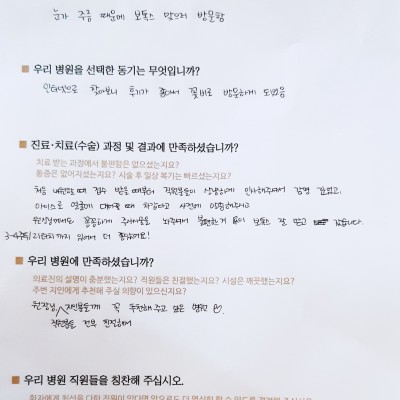 눈가 주름 때문에 보톡스 맞으러 방문함
■ 우리 병원을 선택한 동기는 무엇입니까?
인터넷으로 찾아보니 후기가 좋아서 방문하게 되었음
■ 진료·치료(수술) 과정 및 결과에 만족하셨습니까?
치료 받는 과정에서 불편함은 없으셨는지요?
통증은 없어지셨는지요? 시술 후 일상 복기는 빠르셨는지요?
처음 내원할 때 접수 받을 때부터 직원분들이 상냥하게 인사해주셔서 감명 깊었고.
아이스로 얼굴에 대어줄 때 차갑다고 사전에 말씀해주시고
원장님께서도 꼼꼼하게 주사를 놔주셔서 불편한거 없이 보톡스 잘 맞고 갑니다.
3-4주뒤 리터치까지 있어서 더 좋았어요!
■ 우리 병원에 만족하셨습니까?
의료진의 설명이 충분했는지요? 직원들은 친절했는지요? 시설은 깨끗했는지요?
주변 지인에게 추천해 주실 의향이 있으신지요?
원장님, 지인분들께 꼭 추천해주고 싶은 병원
직원분들 전부 친절해서
■ 우리 병원 직원들을 칭찬해 주십시오.